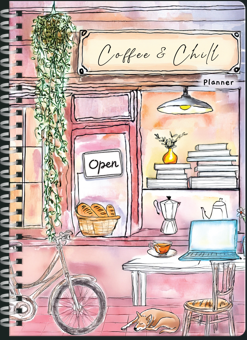 Coffee & Chill
Planner
Open